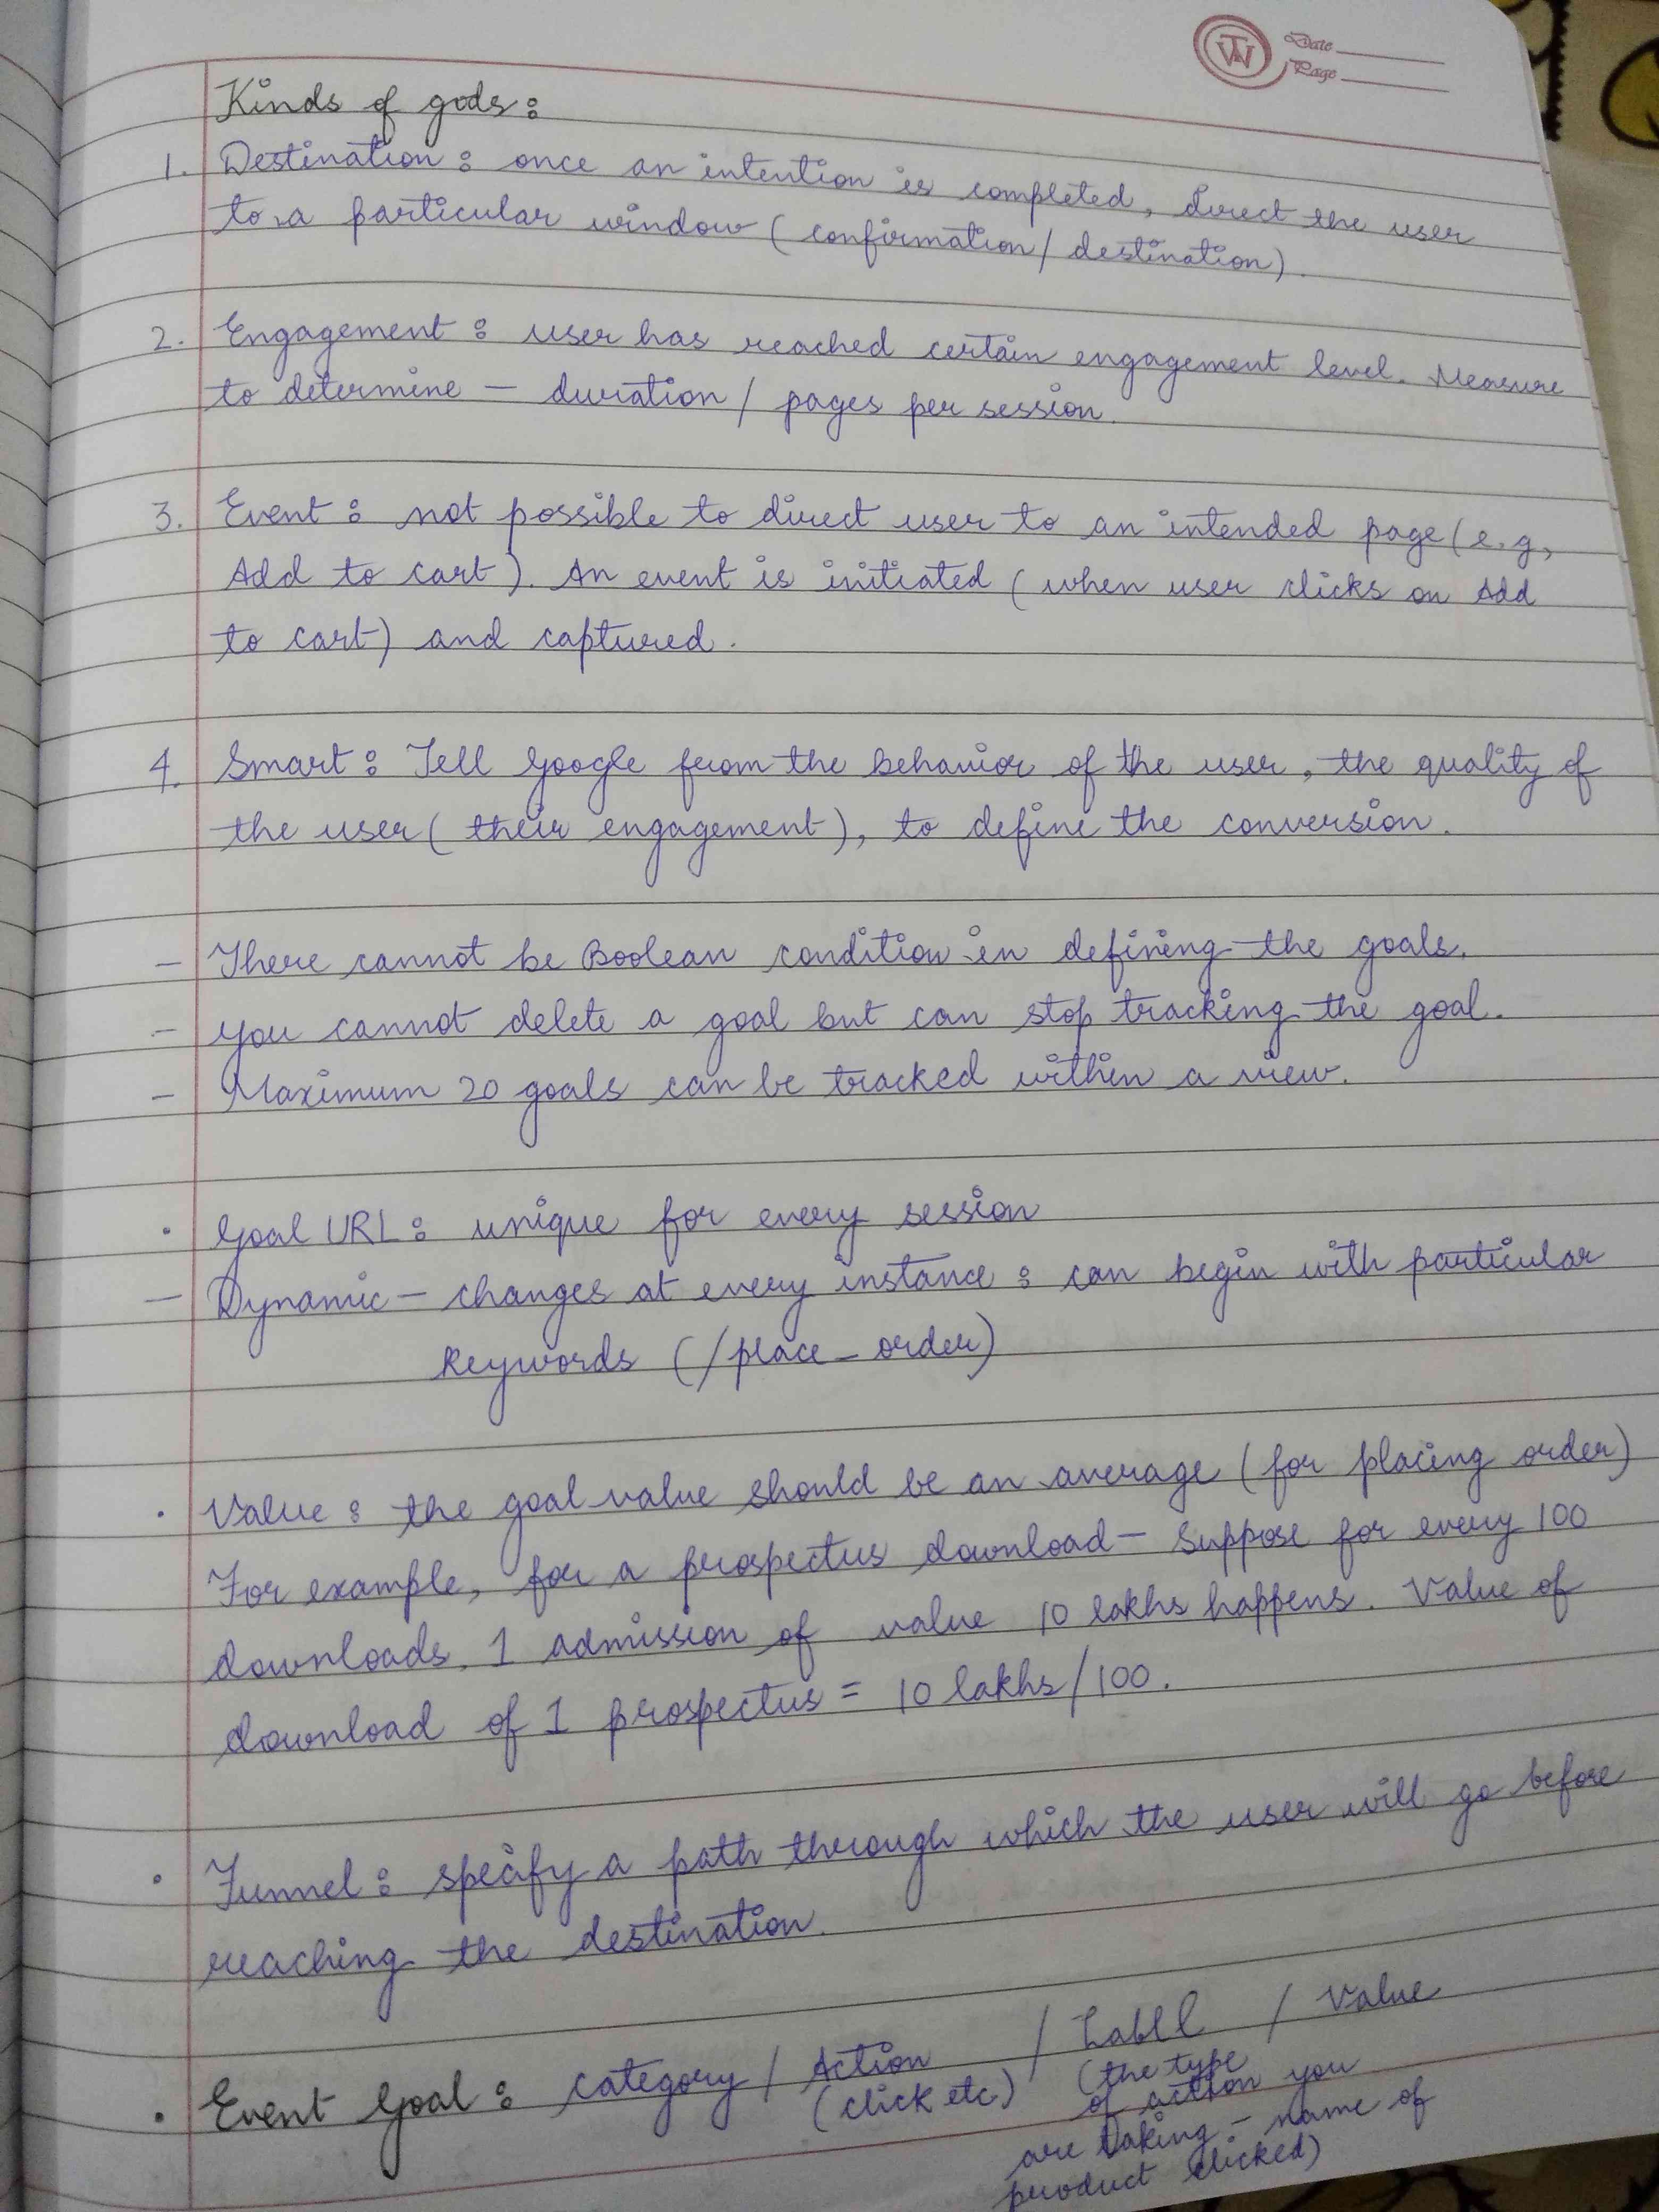 TW
Date
Page
Kinds of gods:
1. Destination: once an intention is completed, direct the user
to a particular window (confirmation/destination).
2. Engagement: user has reached certain engagement level. Measure
to determine — duration/pages per session.
3. Event: not possible to direct user to an intended page (e.g,
Add to cart). An event is initiated (when user clicks on Add
to cart) and captured.
4. Smart: Tell Google from the behavior of the user, the quality of
the user (their engagement), to define the conversion.
— There cannot be Boolean condition in defining the goals.
— you cannot delete a goal but can stop tracking the goal.
— Maximum 20 goals can be tracked within a view.
• Goal URL: unique for every session
— Dynamic — changes at every instance: can begin with particular
keywords (/place_order)
• Value: the goal value should be an average (for placing order)
For example, for a prospectus download — Suppose for every 100
downloads, 1 admission of value 10 lakhs happens. Value of
download of 1 prospectus = 10 lakhs/100.
• Funnel: specify a path through which the user will go before
reaching the destination.
• Event Goal: category / Action / Labll / Value
(click etc) (the type
of action you
are taking — name of
product clicked)